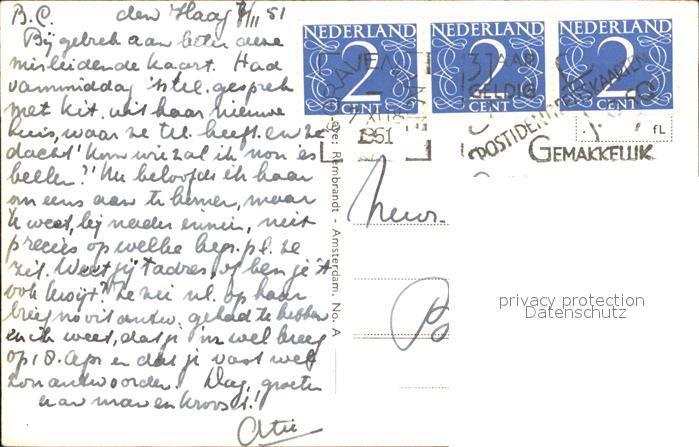 B.C. den Haag 7/11 51
Bij gebrek aan beter deze
misleidende kaart. Had
vanmiddag 'n tel. gesprek
met Kit. uit haar nieuwe
huis, waar ze tel. heeft. en ze
dacht 'Kom wie zal ik nou 'es
bellen?' Nu beloofde ik haar
om eens aan te komen, maar
'k weet, bij nader inzien, niet
precies op welke begr.pl. ze
zit. Weet jij 't adres, of ben je 't
ook kwijt? Ze zei nl. op haar
brief nooit antw. gehad te hebben
en ik weet, dat je in wel kreeg
op 18. Apr en dat je vast wel
zou antwoorden. Dag, groeten
aan man en kroost!
Atie
NEDERLAND
2
CENT
NEDERLAND
2
CENT
NEDERLAND
2
CENT
1951
3 JAAR
GELDIG
POSTIDENTITEITSKAARTEN
GEMAKKELIJK
fL
Rembrandt - Amsterdam. No. A
Mevr.
privacy protection
Datenschutz